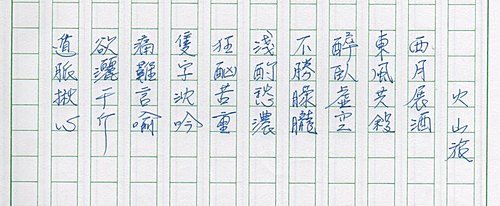 火山旅
西月展酒
東風共
醉臥虛空
不勝朦朧
淺酌愁濃
狂酗苦重
隻字沈吟
痛難言喻
欲灑千斤
道脈揪心